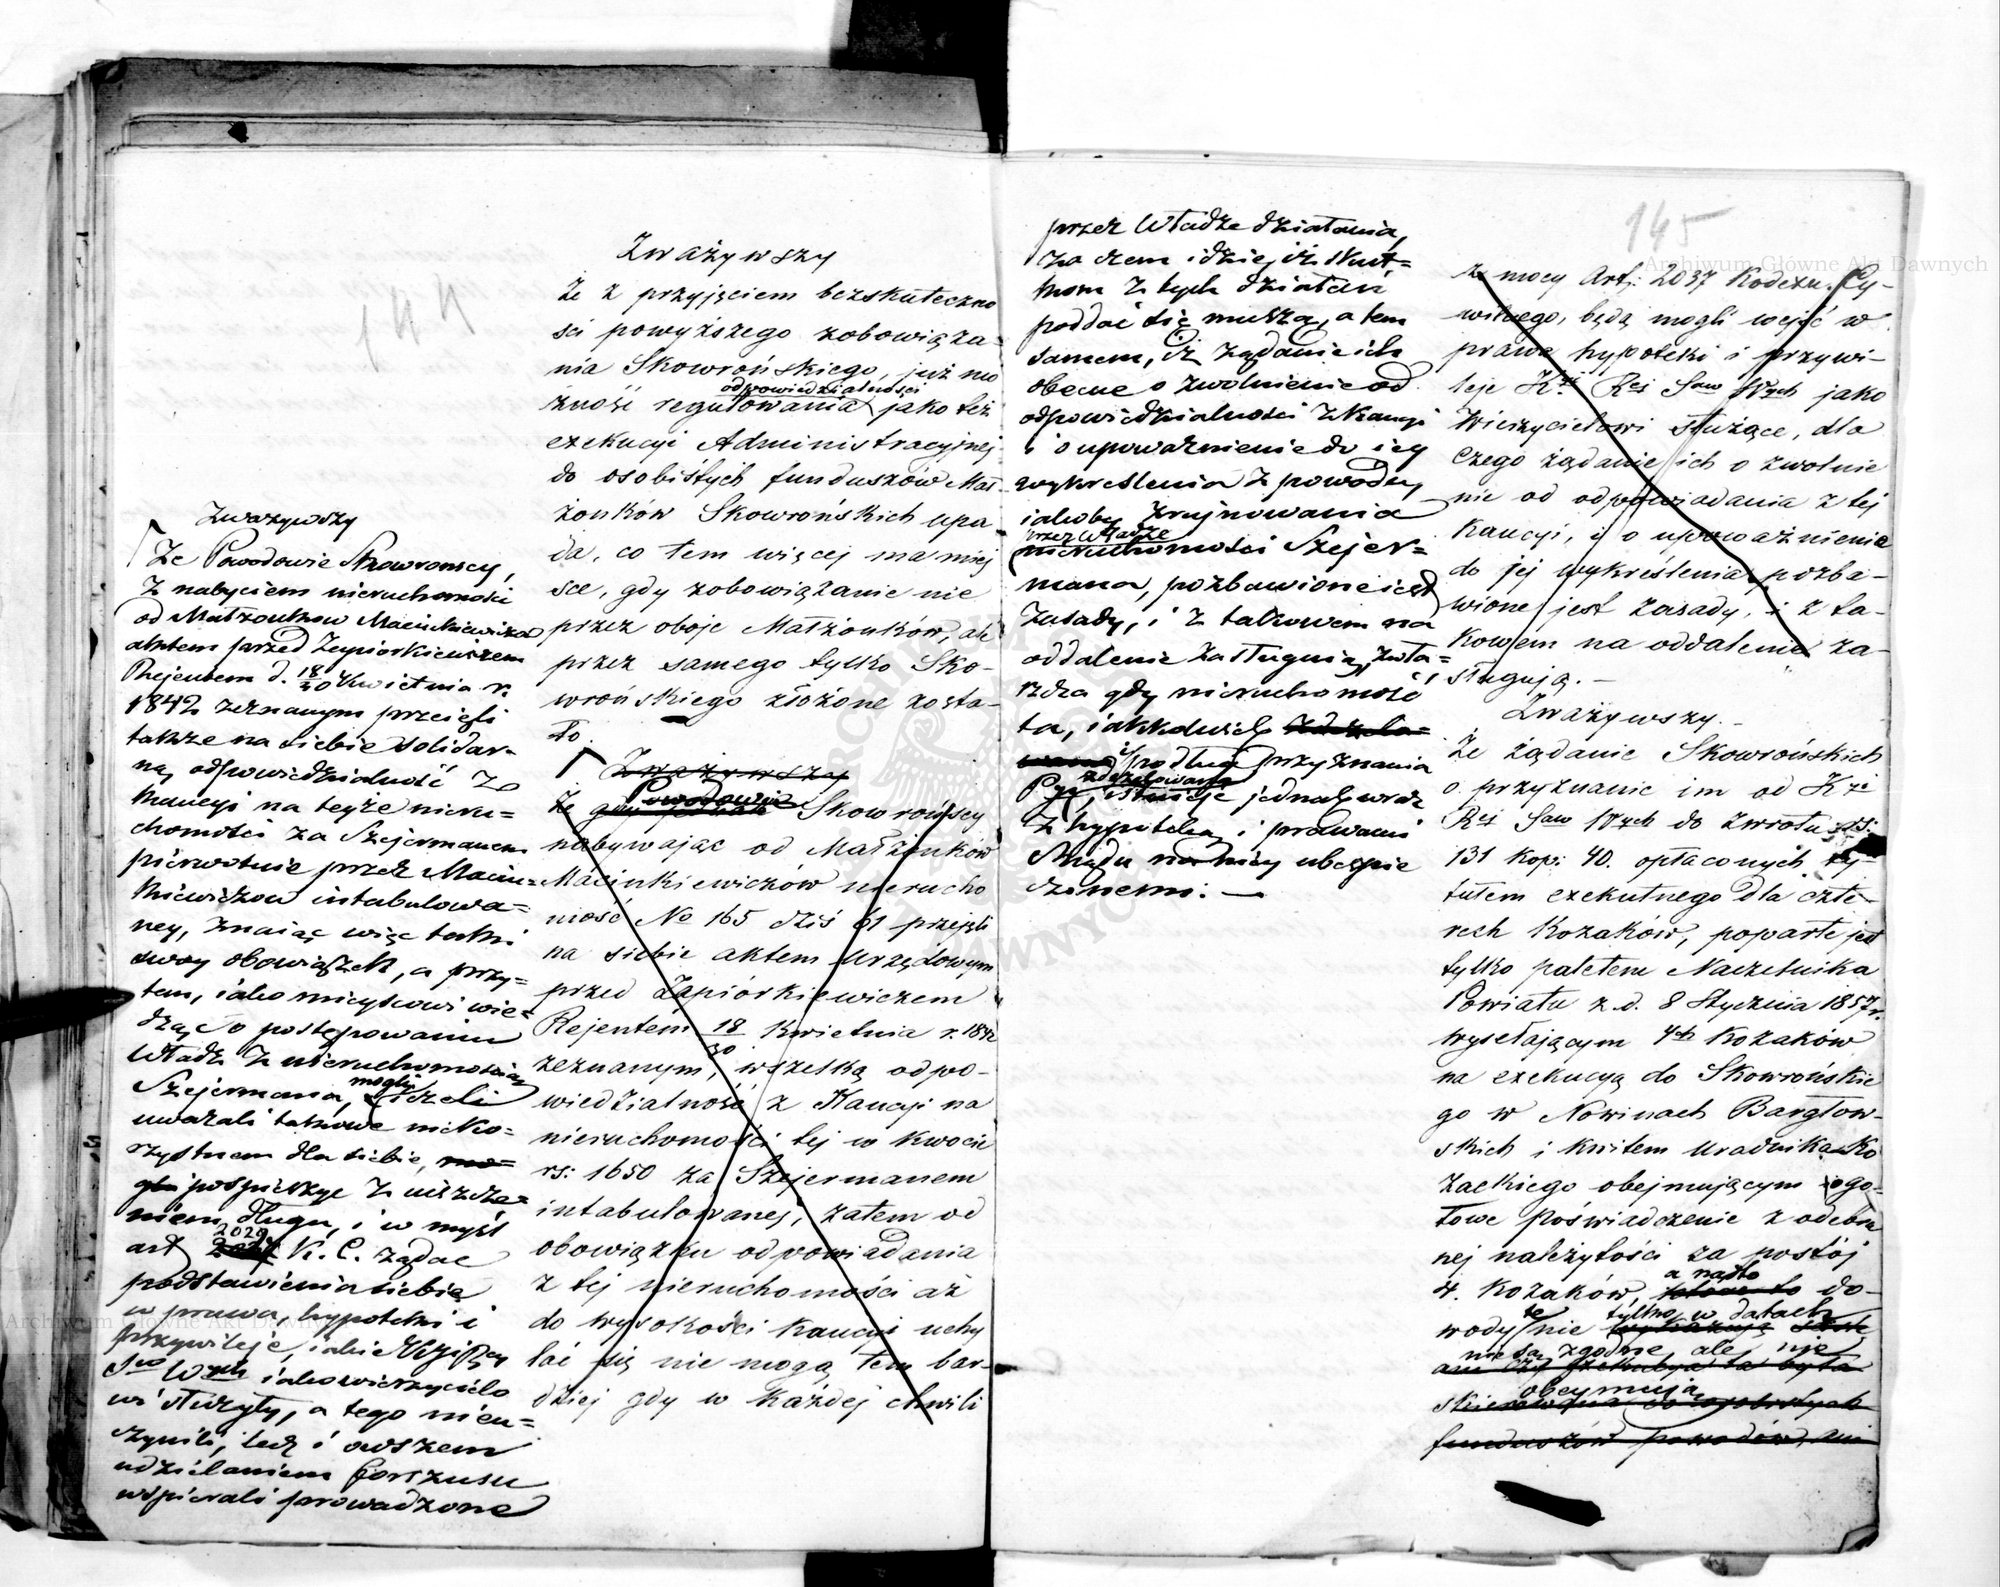 144
Zważywszy
Że z przyjęciem bezskuteczno
ści powyższego zobowiąza-
nia Skowrońskiego, już mo
odpowiedzialności
żność regulowania jako też
exekucyi Administracyjnej
do osobistych funduszów Mał-
żonków Skowrońskich upa-
da, co tem więcej ma miej
sce, gdy zobowiązanie nie
przez oboje Małżonków, ale
przez samego tylko Sko-
wrońskiego złożone zosta-
ło.
Zważywszy
Powodowie
Że gdy jednak Skowrońscy
nabywając od Małżonków
Macinkiewiczów nierucho
mość No 165 dziś 61 przejęli
na siebie aktem Urzędowym
przed Zapiórkiewiczem
Rejentem 18/30 Kwietnia r. 1842
zeznanym, wszelką odpo-
wiedzialność z Kaucyi na
nieruchomości tej w kwocie
rs: 1650 za Szejermanem
intabulowanej, zatem od
obowiązku odpowiadania
z tej nieruchomości aż
do wysokości Kaucyi uchy
lać się nie mogą, tem bar-
dziej gdy w każdej chwili
Zważywszy
Że Powodowie Skowrońscy,
z nabyciem nieruchomości
od Małżonków Macinkiewiczów
aktem przed Zapiorkiewiczem
Rejentem d. 18/30 Kwietnia r.
1842 zeznanym przejęli
także na siebie solidar-
ną odpowiedzialność z
kaucyi na teyże nieru=
chomości za Szejermanem
pierwotnie przez Macin=
kiewiczow intabulowa=
ney, znaiąc więc taki
swoy obowiązek, a przy=
tem, iako mieyscowi wie=
dząc o postępowaniu
Władz z nieruchomością
Szejermana, mogli jeżeli
uważali takowe nieko=
rzystnem dla siebie, mo=
gli pospieszyć z uiszcze=
niem długu, i w myśl
2029
art K. C. żądać
podstawienia siebie
w prawa, hypoteki i
przywileje, iakie Kzi Rej
Swo Wych iako wierzycielo
wi służyły, a tego nieu=
czynili, lecz i owszem
udzielaniem Forszusu
wspierali prowadzone
przez Władze działania,
za czem idzie, iż skut=
kom z tych działań
poddać się muszą, a tem
samem, iż żądanie ich
obecne o zwolnienie od
odpowiedzialności z Kaucyi
i o upoważnienie do iey
wykreslenia z powodu
iakoby zrujnowania
przez Władze
nieruchomości Szejer=
mana, pozbawione iest
zasady, i z takowem na
oddalenie zasługuią, zwła=
szcza gdy nieruchomość
ta, iakkolwiek zdezelo=
wana podług przyznania
zdezelowana
Pyc, istnieje jednak wraz
z hypoteką i prawami
Rządu na niey ubespie
czonemi. —
145
z mocy Art: 2037 Kodexu Cy-
wilnego, będą mogli wejść w
prawa hypoteki i przywi-
leje Kzi Rej Saw Wych jako
Wierzycielowi służące, dla
czego żądanie ich o zwolnie
nie od odpowiadania z tej
Kaucyi, i o upoważnienie
do jej wykreślenia pozba-
wione jest zasady, i z ta-
kowem na oddalenie za-
sługują. —
Zważywszy. -
Że żądanie Skowrońskich
o przyznanie im od Kzi
Rej Saw Wych do zwrotu rs:
131 kop: 40. opłaconych ty-
tułem exekutnego dla czte-
rech Kozaków, poparte jest
tylko paletem Naczelnika
Powiatu z d. 8 Stycznia 1857 r.
wysełającym 4ch Kozaków
na exekucyą do Skowrońskie
go w Nowinach Bargłow-
skich i kwitem Uradnika Ko
zackiego obejmującym ogo-
łowe poświadczenie z odebra
nej należytości za postój
a nadto
4. Kozaków, do-
te tylko w datach
wody nie wykazują
nie są zgodne, ale nie
ani czy exekucya ta była
obeymują
skierowana do osobistych
funduszów powodów, ani
Archiwum Główne Akt Dawnych
Archiwum Główne Akt Dawnych